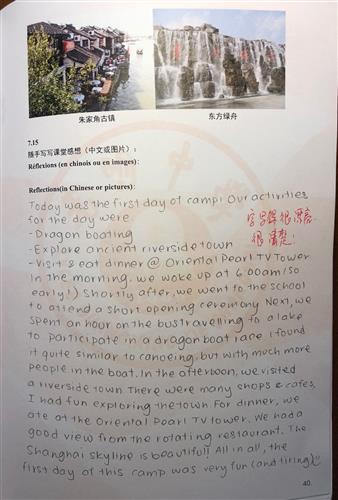 朱家角古镇
东方绿舟
7.15
随手写写课堂感想（中文或图片）：
Réflexions (en chinois ou en images):
Reflections(in Chinese or pictures):
Today was the first day of camp! Our activities
for the day were
- Dragon boating
- Explore ancient riverside town
- Visit & eat dinner @ Oriental Pearl TV Tower
In the morning, we woke up at 6:00am (so
early!) Shortly after, we went to the school
to attend a short opening ceremony. Next, we
spent an hour on the bus travelling to a lake
to participate in a dragon boat race. I found
it quite similar to canoeing, but with much more
people in the boat. In the afternoon, we visited
a riverside town. There were many shops & cafes.
I had fun exploring the town. For dinner, we
ate at the Oriental Pearl TV tower. We had a
good view from the rotating restaurant. The
Shanghai skyline is beautiful! All in all, the
first day of this camp was very fun (and tiring).
很漂亮
很清楚!
40.